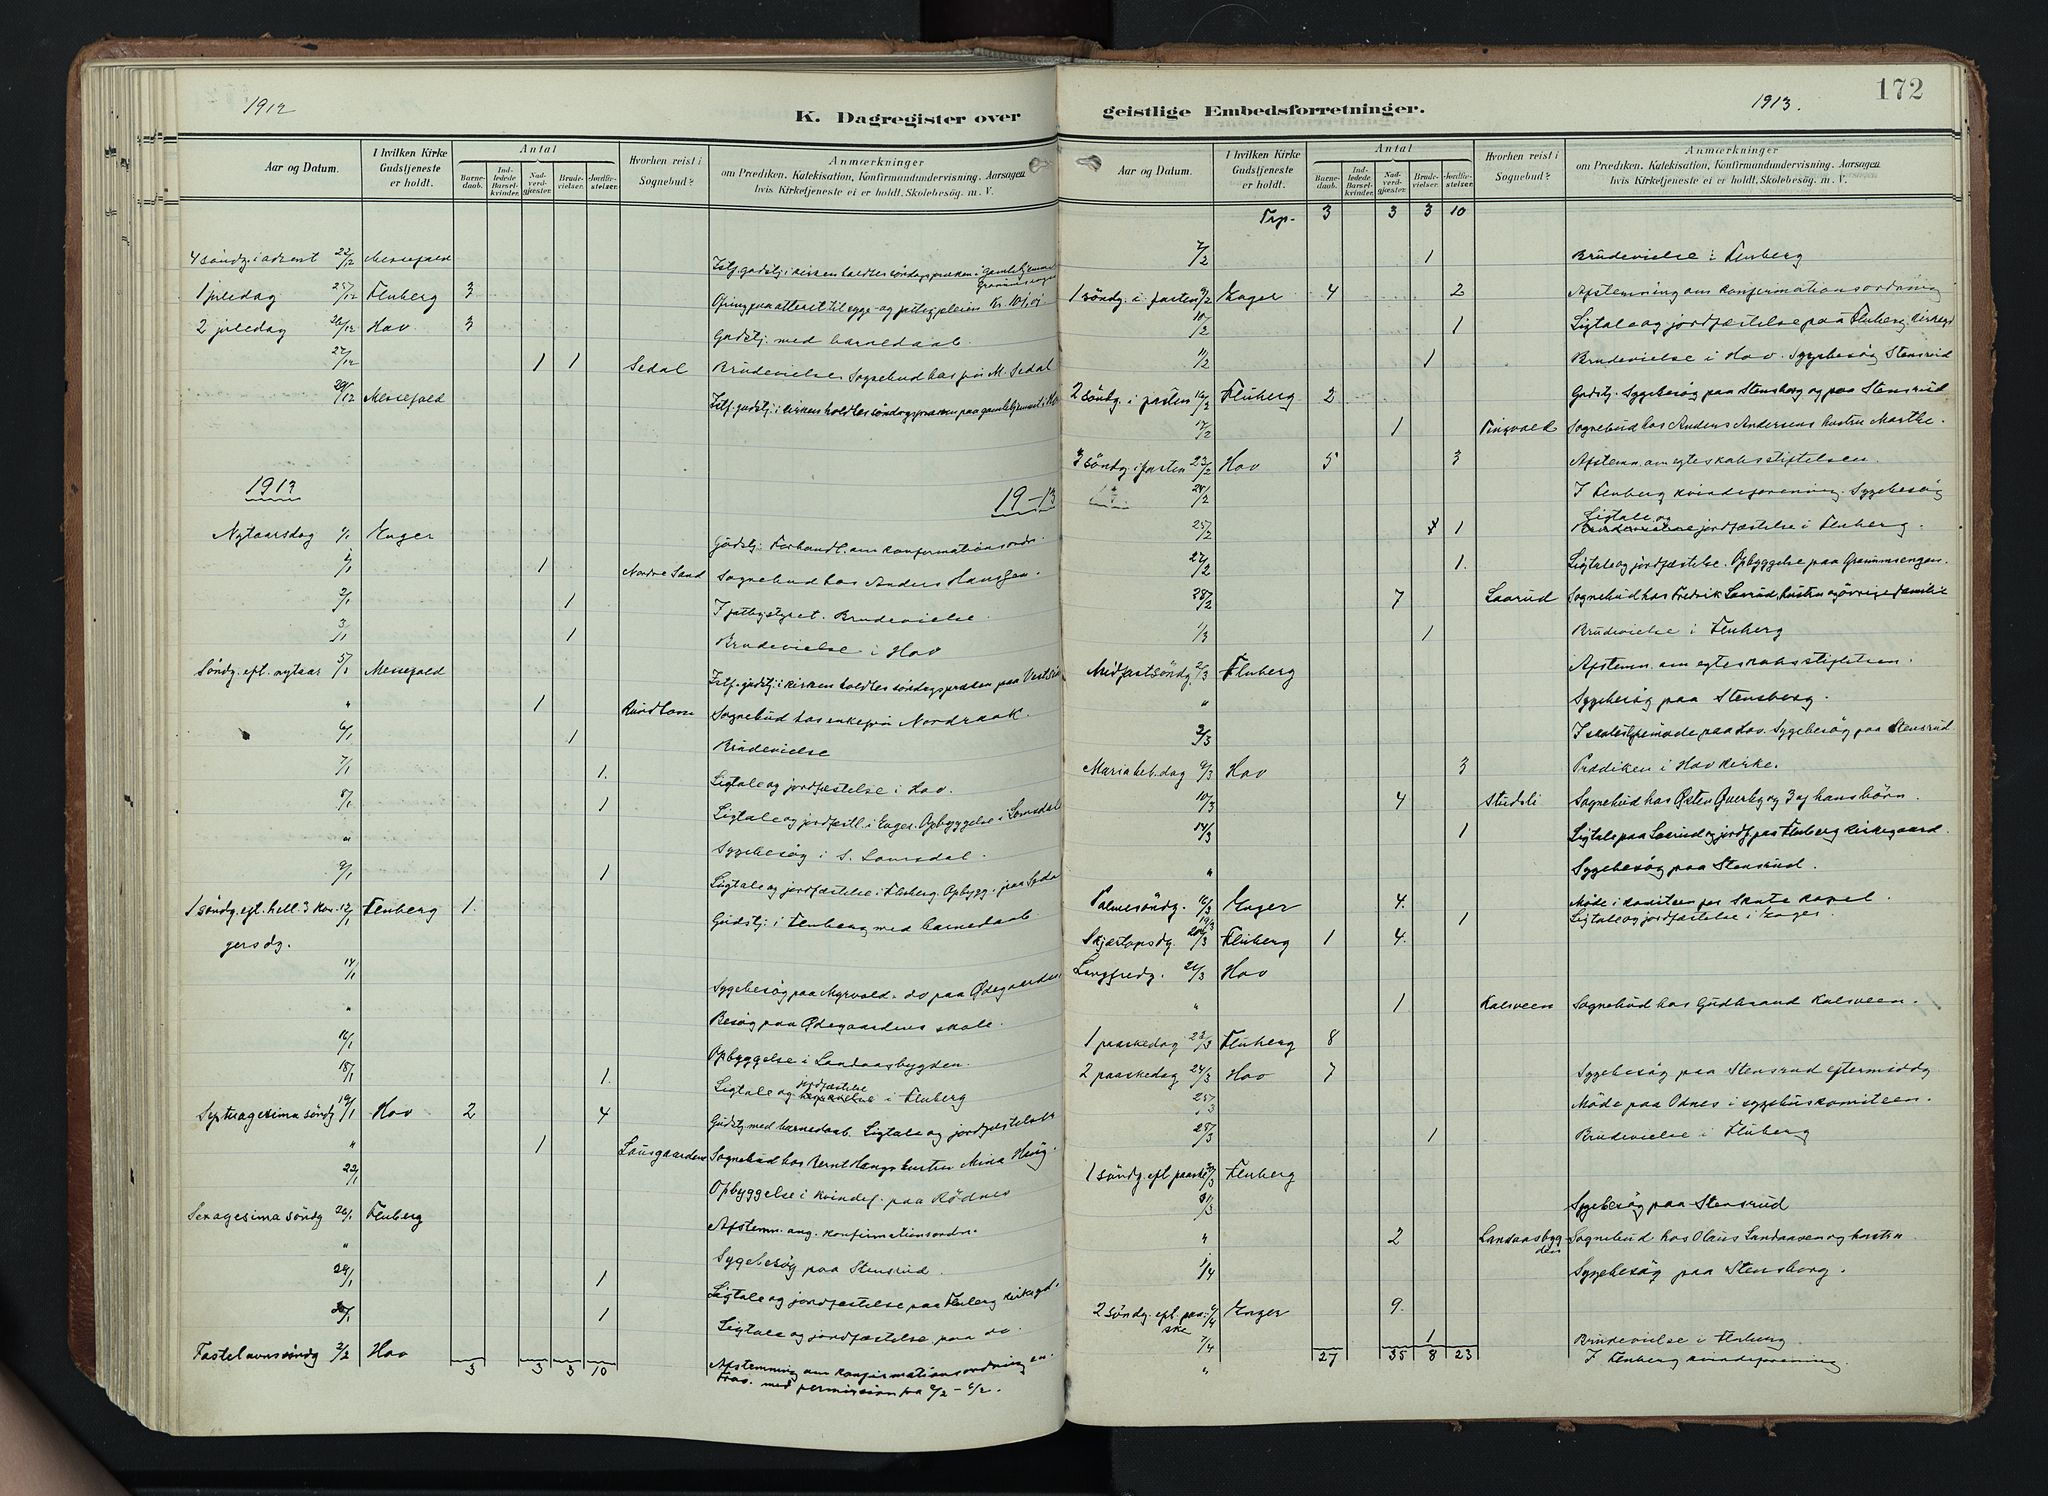 1912
K. Dagregister over
Aar og Datum. | I hvilken Kirke Gudstjeneste er holdt. | Antal | Barnedaab. | Indledede Barselkvinder. | Nadverdgjester. | Brudevielser. | Jordfæstelser. | Hvorhen reist i Sognebud? | Anmærkninger om Prædiken, Katekisation, Konfirmandundervisning, Aarsagen hvis Kirketjeneste ei er holdt, Skolebesøg. m. V.
4 søndg. i advent 22/12 | Messefald | Istf. gudstj. i kirken holdtes søndagspræken i gamlehjemmet
1 juledag 25/12 | Fluberg | 3 | Ofring paa alteret til syge- og fattigpleien Kr.
2 juledag 26/12 | Hov | 3 | Gudstj. med barnedaab.
27/12 | 1 | 1 | Sedal | Brudevielse. Sognebud hos M. Sedal
29/12 | Messefald | Istf. gudstj. i kirken holdtes søndagspræken paa gamlehjemmet i Hov
1913 | 19-13
Nytaarsdag 1/1 | Enger | Gudstj. Forhandl. om konfirmationsordn.
1/1 | 1 | Nordre Sand | Sognebud hos Anders Hanssen.
2/1 | 1 | I fattigstyret. Brudevielse.
3/1 | 1 | Brudevielse i Hov
Søndg. eft. nytaar 5/1 | Messefald | Istf. gudstj. i kirken holdtes søndagspræken paa
" | 1 | Sognebud hos enkefru Nordraak.
6/1 | 1 | Brudevielse
7/1 | 1. | Ligtale og jordfæstelse i Hov.
8/1 | 1 | Ligtale og jordfæstl. i Enger. Opbyggelse i Lomsdal
" | Sygebesøg i S. Lomsdal.
9/1 | 1 | Ligtale og jordfæstelse i Fluberg. Opbygg. paa
1 søndg. eft. hell. 3 kon- 12/1 | Fluberg | 1. | Gudstj. i Fluberg med barnedaab.
gersdg.
14/1 | Sygebesøg paa Myrvold. do paa Ødegaarden.
" | Besøg paa Ødegaardens skole.
16/1 | Opbyggelse i Landaasbygden.
18/1 | 1. | Ligtale og jordfæstelse i Fluberg
Septuagesima søndg 19/1 | Hov | 2 | 4 | Gudstj. med barnedaab. Ligtale og jordfæstelse
" | 1 | Lausgaarden | Sognebud hos Bernt Haugs hustru Mina Haug.
22/1 | Opbyggelse i kvindef. paa Rødnes
Sexagesima søndg 26/1 | Fluberg | Afstemn. ang. konfirmationsordn.
" | Sygebesøg paa Stensrud.
29/1 | 1 | Ligtale og jordfæstelse paa Fluberg kirkegd.
30/1 | 1 | Ligtale og jordfæstelse paa do.
Fastelavnssøndg 2/2 | Hov | Afstemning om konfirmationsordningen.
3 | 3 | 3 | 10 | med permission fra

172
1913.
geistlige Embedsforretninger.
Aar og Datum. | I hvilken Kirke Gudstjeneste er holdt. | Antal | Barnedaab. | Indledede Barselkvinder. | Nadverdgjester. | Brudevielser. | Jordfæstelser. | Hvorhen reist i Sognebud? | Anmærkninger om Prædiken, Katekisation, Konfirmandundervisning, Aarsagen hvis Kirketjeneste ei er holdt, Skolebesøg. m. V.
Trp. | 3 | 3 | 3 | 10
7/2 | 1 | Brudevielse i Fluberg
1 søndg. i fasten 9/2 | Enger | 4 | 2 | Afstemning om konfirmationsordning
10/2 | 1 | Ligtale og jordfæstelse paa Fluberg kirkegd
11/2 | 1 | Brudevielse i Hov. Sygebesøg Stensrud
2 søndg. i fasten 16/2 | Fluberg | 2 | Gudstj. Sygebesøg paa Stensborg og paa Stensrud
17/2 | 1 | Tingvold | Sognebud hos Anders Andersens hustru Marthe.
3 søndg. i fasten 23/2 | Hov | 5 | 3 | Afstemn. om egteskabsstiftelsen.
24/2 | I Fluberg kvindeforening. Sygebesøg
25/2 | 1 | Ligtale og jordfæstelse i Fluberg.
27/2 | 1. | Ligtale og jordfæstelse. Opbyggelse paa
28/2 | 7 | Laarud | Sognebud hos Fredrik Laarud, hustru og øvrige familie
1/3 | 1 | Brudevielse i Fluberg
Midfastsøndg. 2/3 | Fluberg | Afstemn. om egteskabsstiftelsen.
" | Sygebesøg paa Stensberg.
3/3 | I skolestyremøde paa Hov. Sygebesøg paa Stensrud.
Mariabeb.dag 9/3 | Hov | 3 | Prædiken i Hov kirke.
10/3 | 4 | Studsli | Sognebud hos Østen Øverby og 3 af hans børn.
14/3 | 1 | Ligtale paa Laarud og jordf. paa Fluberg kirkegaard.
" | Sygebesøg paa Stensrud.
Palmesøndg. 16/3 | Enger | 4. | Møde i komiteen for Skute kapel.
19/3 | 1 | Ligtale og jordfæstelse i Enger.
Skjærtorsdg. 20/3 | Fluberg | 1 | 4.
Langfredg. 21/3 | Hov
" | 1 | Kalsveen | Sognebud hos Gudbrand Kalsveen.
1 paaskedag 23/3 | Fluberg | 8
2 paaskedag 24/3 | Hov | 7 | Sygebesøg paa Stensrud eftermiddg
25/3 | Møde paa Odnes i sygehuskomiteen.
28/3 | 1 | Brudevielse i Fluberg
1 søndg. eft. paaske 30/3 | Fluberg
31/3 | Sygebesøg paa Stensrud
" | 2 | Landaasbygden | Sognebud hos Olaus Landaasen og hustru
1/4 | Sygebesøg paa Stensborg.
2 søndg. eft. paaske 6/4 | Enger | 9.
7/4 | 1 | Brudevielse i Fluberg.
" | I Fluberg kvindeforening.
27 | 35 | 8 | 23